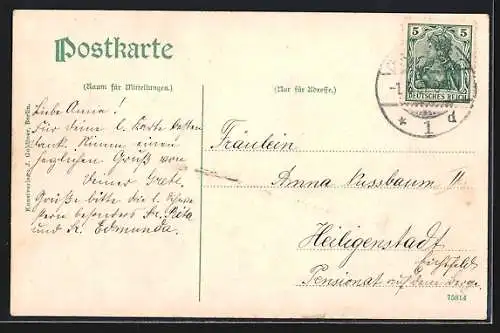 Postkarte
(Raum für Mitteilungen.)
(Nur für Adresse.)
5 5
DEUTSCHES REICH
* 1 d
Liebe Anna!
Für Deine l. Karte besten
Dank. Nimm einen
herzlichen Gruß von
Deiner Grete.
Grüße bitte die l. Schwe
stern besonders Fr. Reta
und K. Edmunda.
Fräulein
Anna Nussbaum
Heiligenstadt
Eichsfeld
Pensionat auf dem Berge.
Kunstverlag J. Goldiner, Berlin.
75814